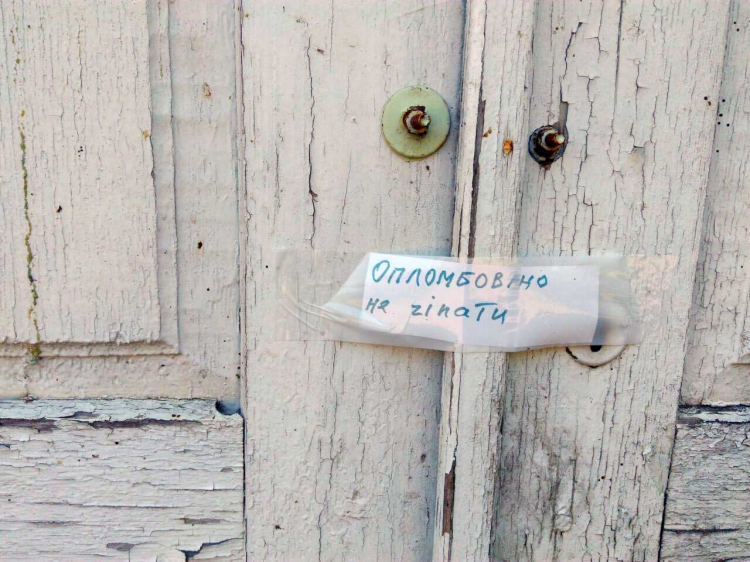 Опломбовано
не чіпати